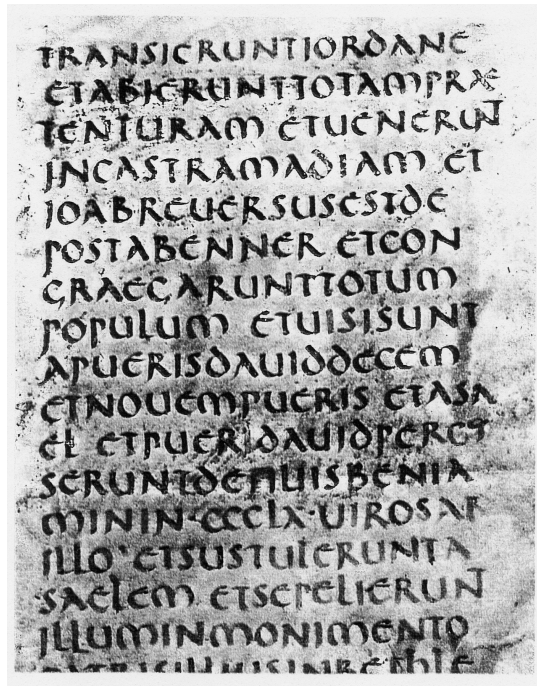 TRANSIERUNTIORDANE
ETABIERUNTTOTAMPRAE
TENTURAM ETUENERUNT
INCASTRAMADIAM ET
IOABREUERSUSESTDE
POSTABENNER ETCON
GRAEGARUNTTOTUM
POPULUM ETUISISUNT
APUERISDAUIDDECEM
ETNOUEMPUERIS ETASA
EL ETPUERIDAUIDPERCUS
SERUNTDEFILIISBENIA
MININ·CCCLX·UIROSAB
ILLO·ETSUSTULERUNTA
SAELEM ETSEPELIERUNT
ILLUMINMONIMENTO
PATRISILLIUSINBETHLE